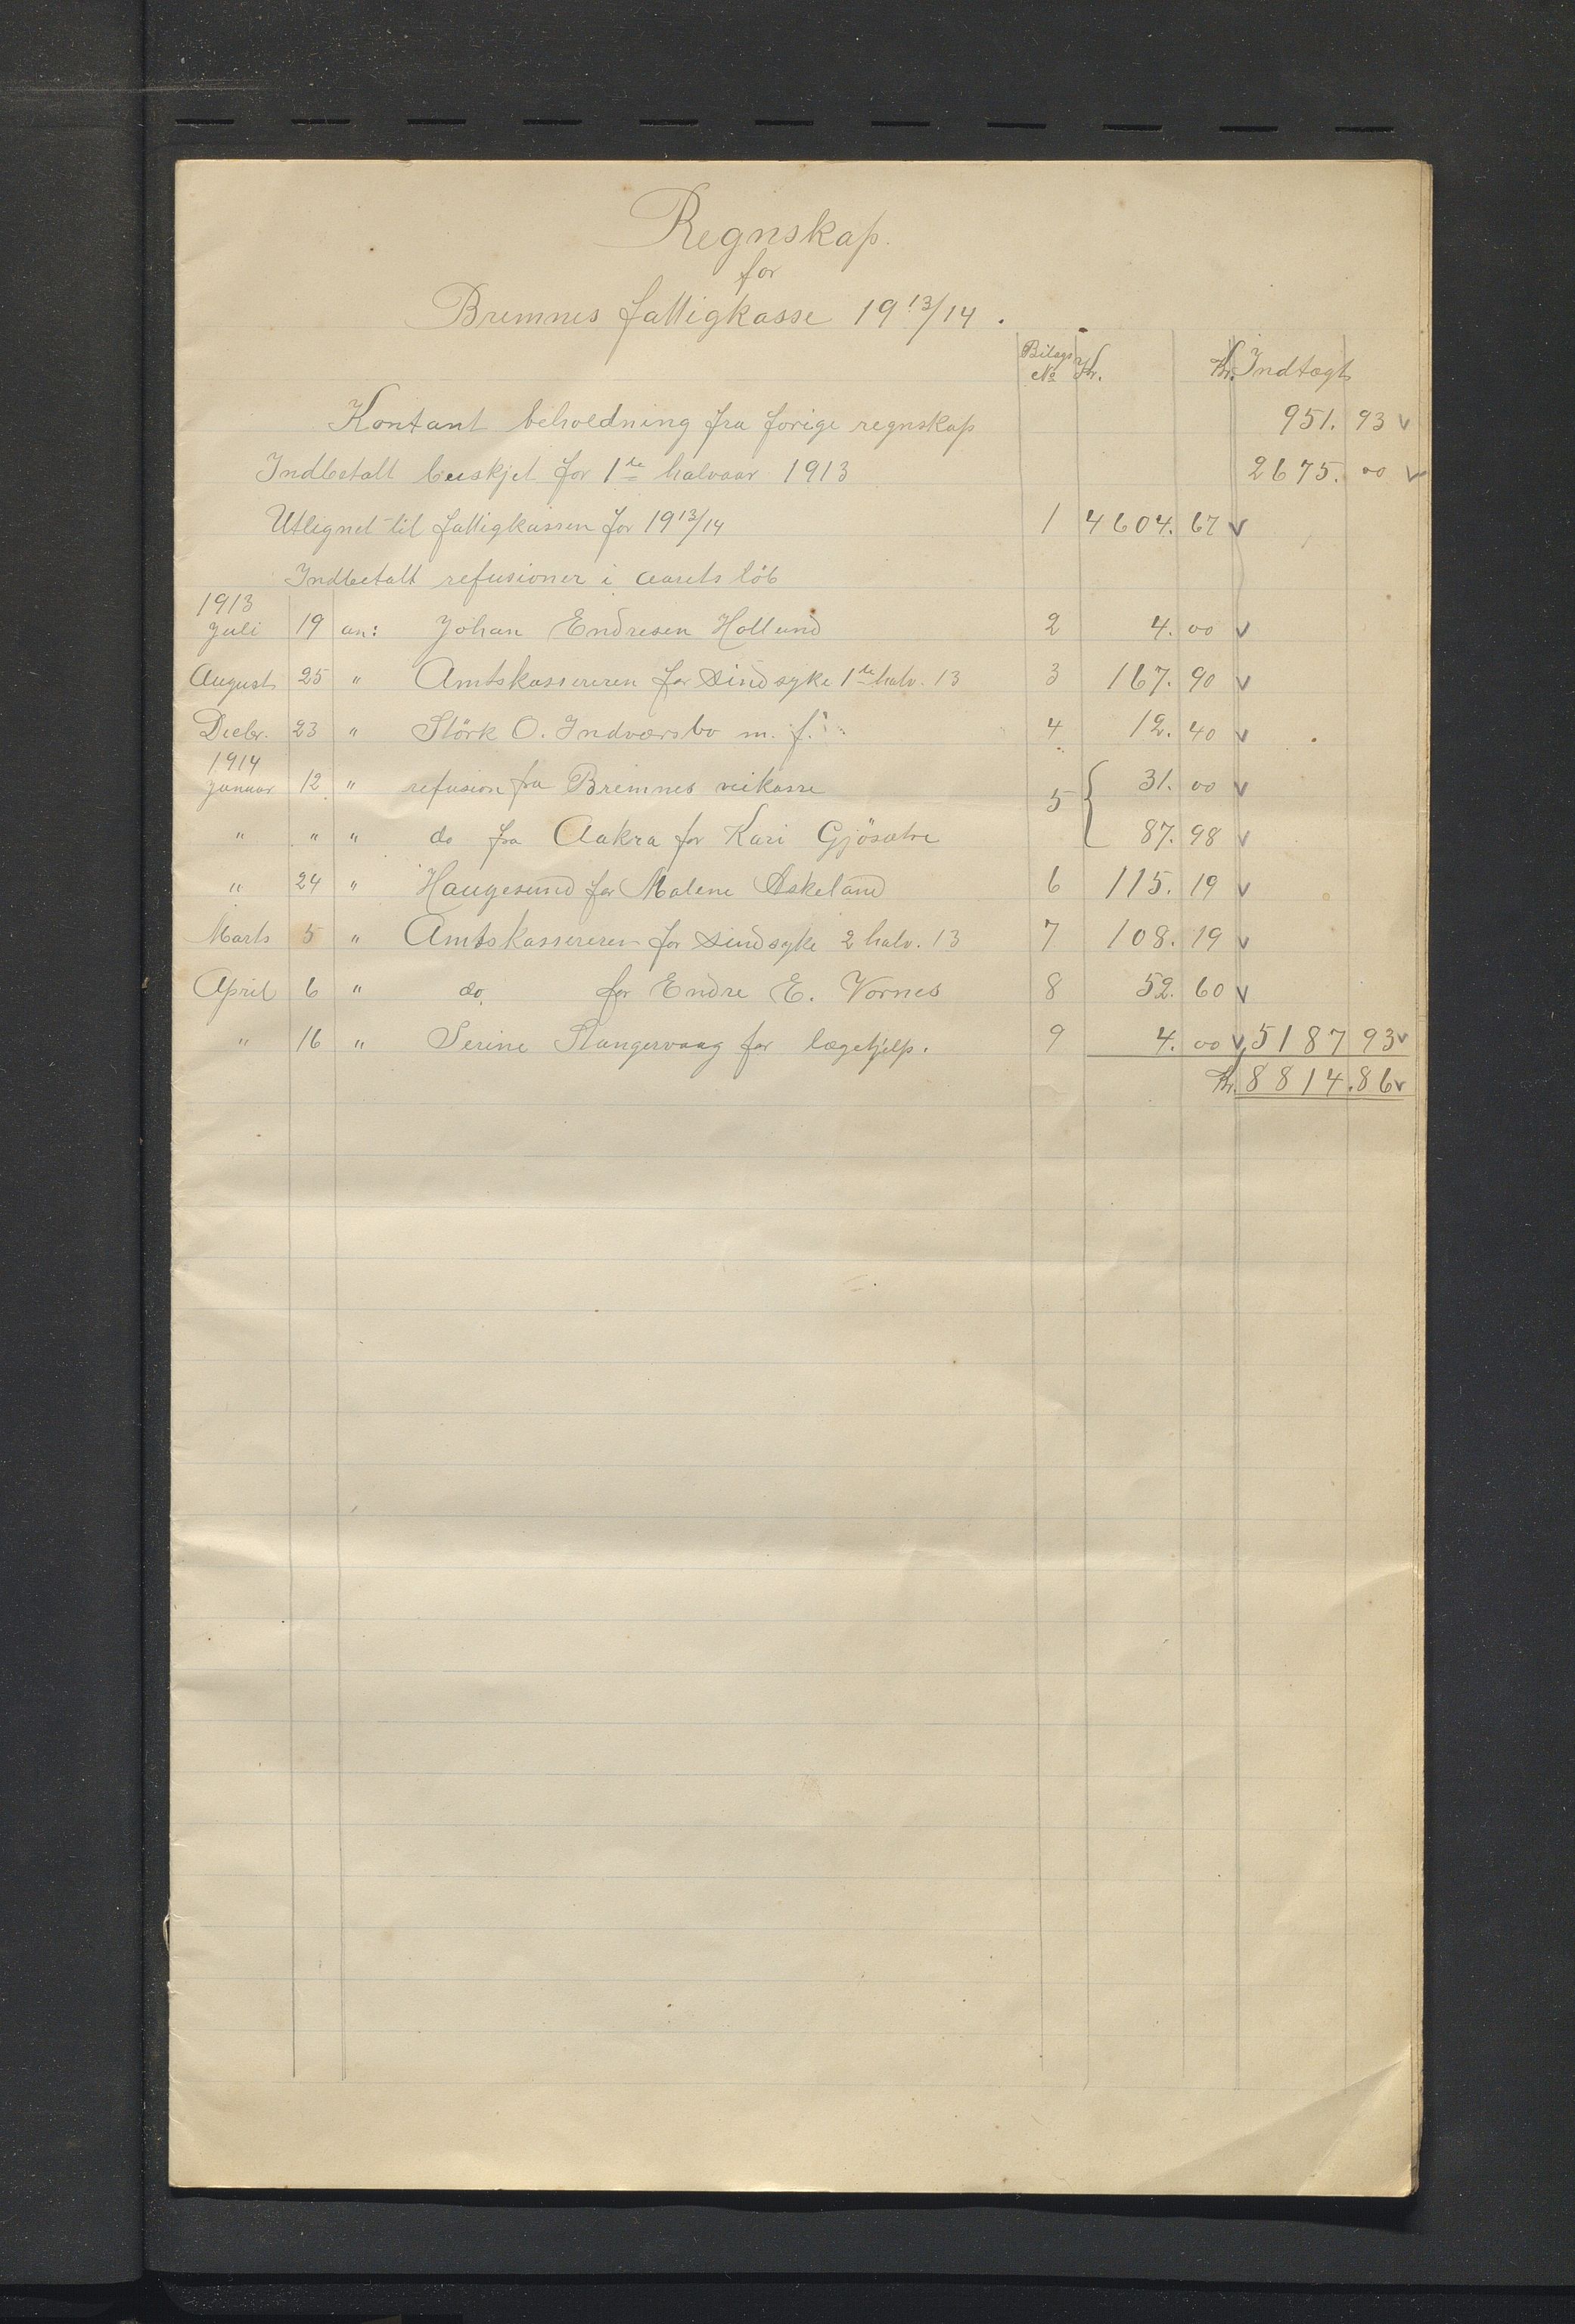 Regnskap.
for
Bremnes fattigkasse 19 13/14.
Bilags No Kr. Kr. Indtægt
Kontant beholdning fra forige regnskap 951. 93 v
Indbetalt for 1te halvaar 1913 2675. 00 v
Utlignet til fattigkassen for 19 13/14 1 4604. 67 v
Indbetalt refusioner i aarets löb
1913
Juli 19 an: Johan Endresen Hollund 2 4. 00 v
August 25 " Amtskassereren for sindsyke 1te halv. 13 3 167. 90 v
Decbr. 23 " Störk O. Indværsbo m. f. 4 12. 40 v
1914
Januar 12 " refusion fra Bremnes veikasse 5 { 31. 00 v
" " " do fra Aakra for Kari Gjösætre 87. 98 v
" 24 " Haugesund for Malene Askeland 6 115. 19 v
Marts 5 " Amtskassereren for sindsyke 2 halv. 13 7 108. 19 v
April 6 " do. for Endre E. Vornes 8 52. 60 v
" 16 " Serine Stangervaag for lægehjelp. 9 4. 00 v 5187 93 v
Kr. 8814.86 v